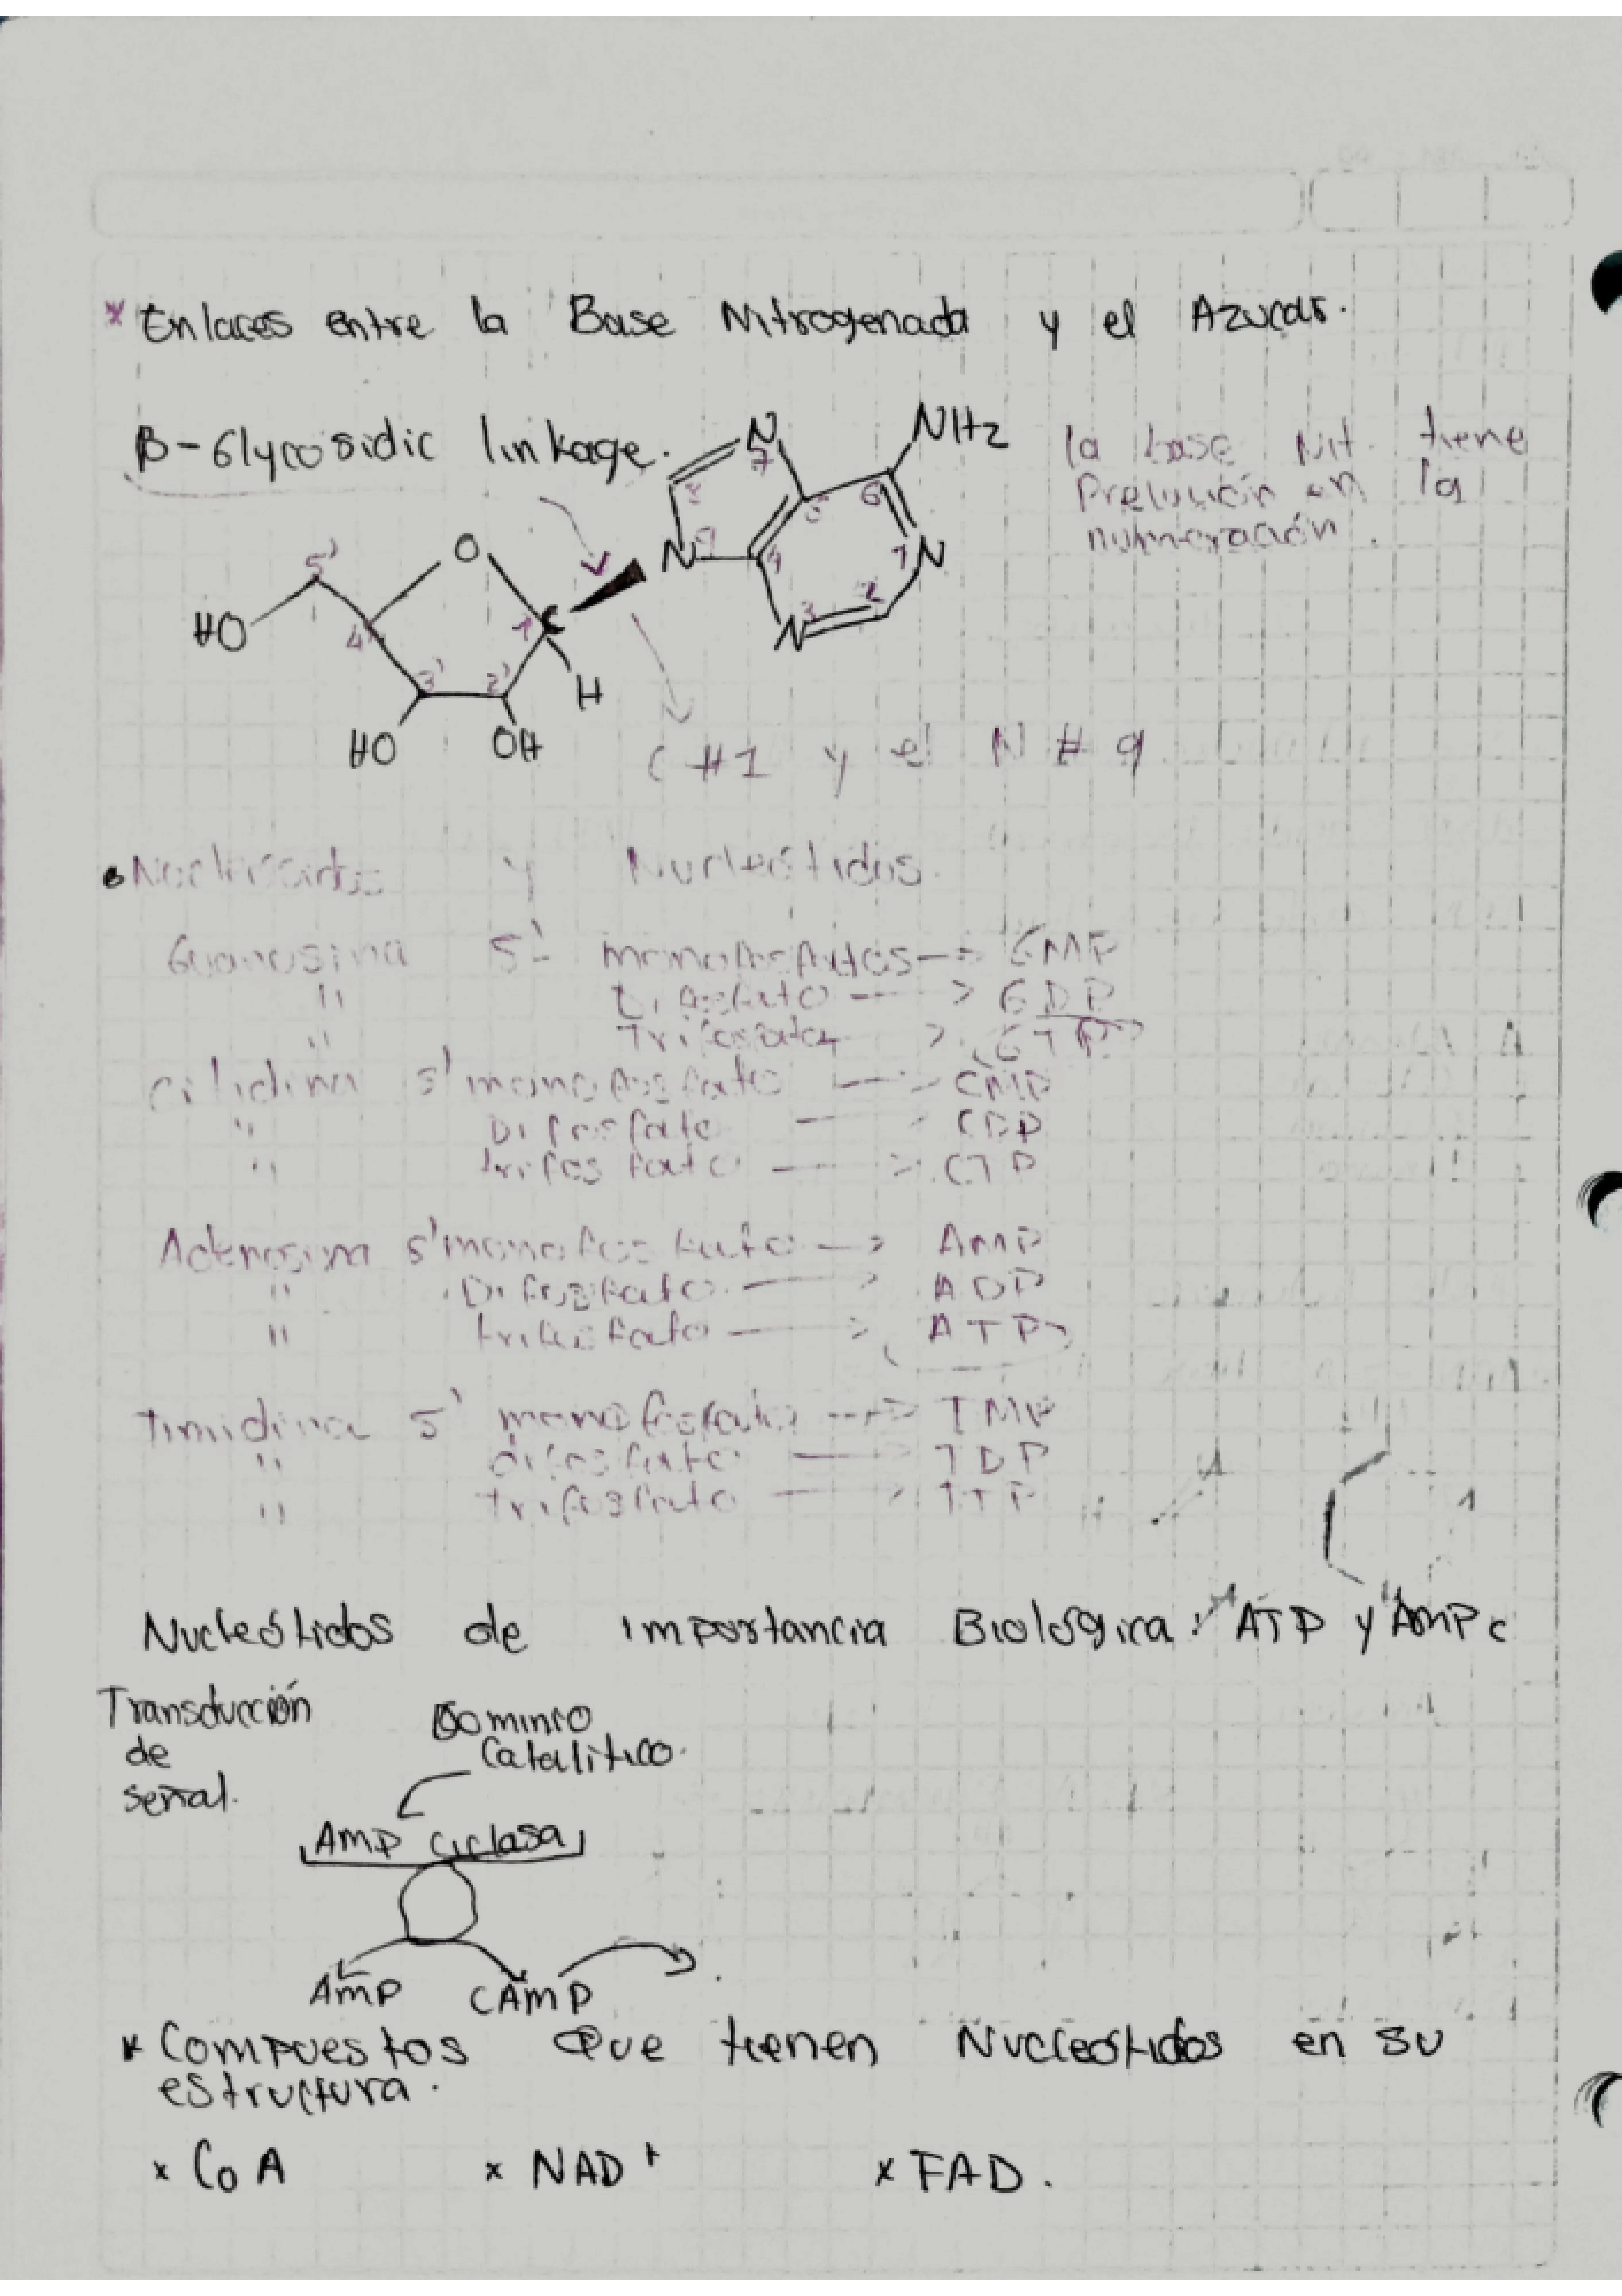 * Enlaces entre la Base Nitrogenada y el Azucar.
β-Glycosidic linkage.
NH2
N
7
8
5
6
N
9
4
1
N
3
2
N
la base Nit. tiene
en la
numeración.
5'
O
HO
4'
1
C
3'
2'
H
HO
OH
C #1 y el N # 9
• Nucleósidos y Nucleótidos.
Guanosina 5'- monofosfatos --> GMP
" Difosfato --> GDP
" Trifosfato > GTP
Citidina 5' monofosfato --> CMP
" Difosfato — CDP
" trifosfato —> CTP
Adenosina 5' monofosfato —> AMP
" Difosfato. —> ADP
" trifosfato —> ATP
Timidina 5' monofosfato --> TMP
" difosfato — TDP
" trifosfato —> TTP
Nucleótidos de importancia Biológica: ATP y AMPc
Transducción
de
señal.
Dominio
Catalitico.
AMP ciclasa
AMP
CAMP
* Compuestos Que tienen Nucleótidos en su
estructura.
x CoA x NAD+ x FAD.